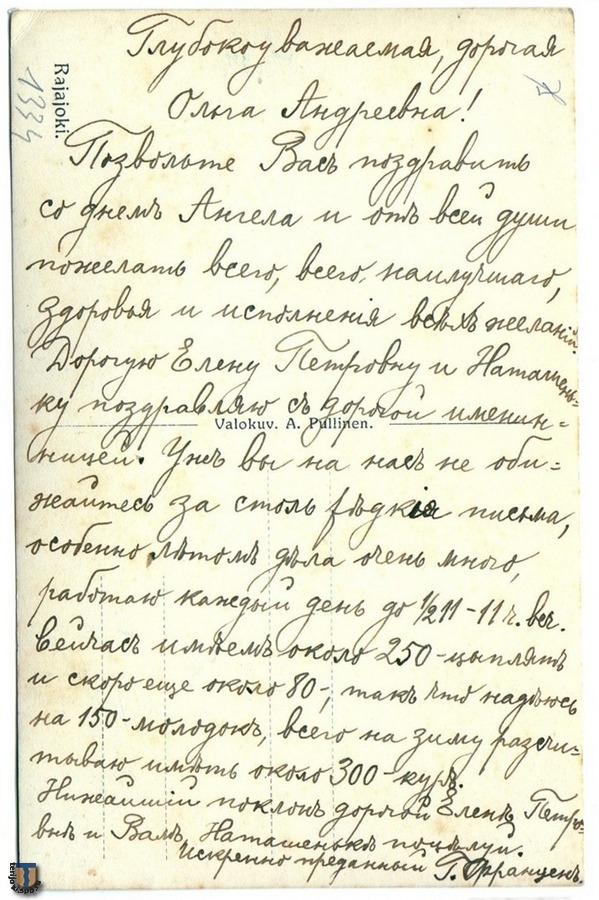 Глубокоуважаемая, дорогая
Ольга Андреевна!
Позвольте Васъ поздравить
со днемъ Ангела и отъ всей души
пожелать всего, всего наилучшаго,
здоровья и исполненія всѣхъ желаній.
Дорогую Елену Петровну и Наташень-
ку поздравляю съ дорогой именин-
ницей. Ужъ вы на насъ не оби-
жайтесь за столь рѣдкія письма,
особенно лѣтомъ дѣла очень много,
работаю каждый день до 1/2 11-11 ч. веч.
Сейчасъ имѣемъ около 250-цыплятъ
и скоро еще около 80-, такъ что надѣюсь
на 150-молодокъ, всего на зиму разсчи-
тываю имѣть около 300-куръ.
Нижайшій поклонъ дорогой Еленѣ Петро-
внѣ и Вамъ, Наташенькѣ поцѣлуй.
Искренно преданный Г. Францен.
Rajajoki.
1334
Valokuv. A. Pullinen.
terijoki